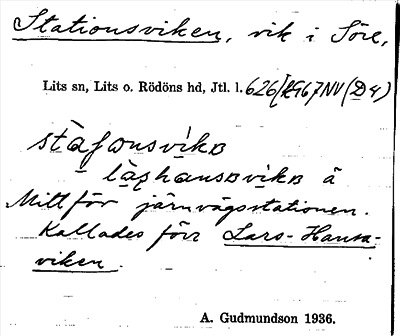 Stationsviken, vik i Söre,
Lits sn, Lits o. Rödöns hd, Jtl. l. 626/
lашansвvikв å
Mitt för järnvägsstationen.
Kallades förr Lars-Hansa-
viken.
A. Gudmundson 1936.